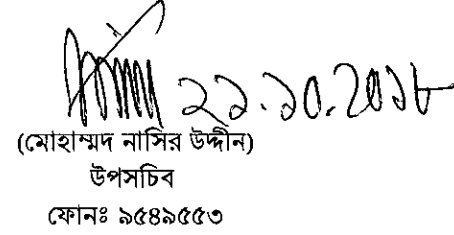 ২২.১০.২০১৮
(মোহাম্মদ নাসির উদ্দীন)
উপসচিব
ফোনঃ ৯৫৪৯৫৫৩